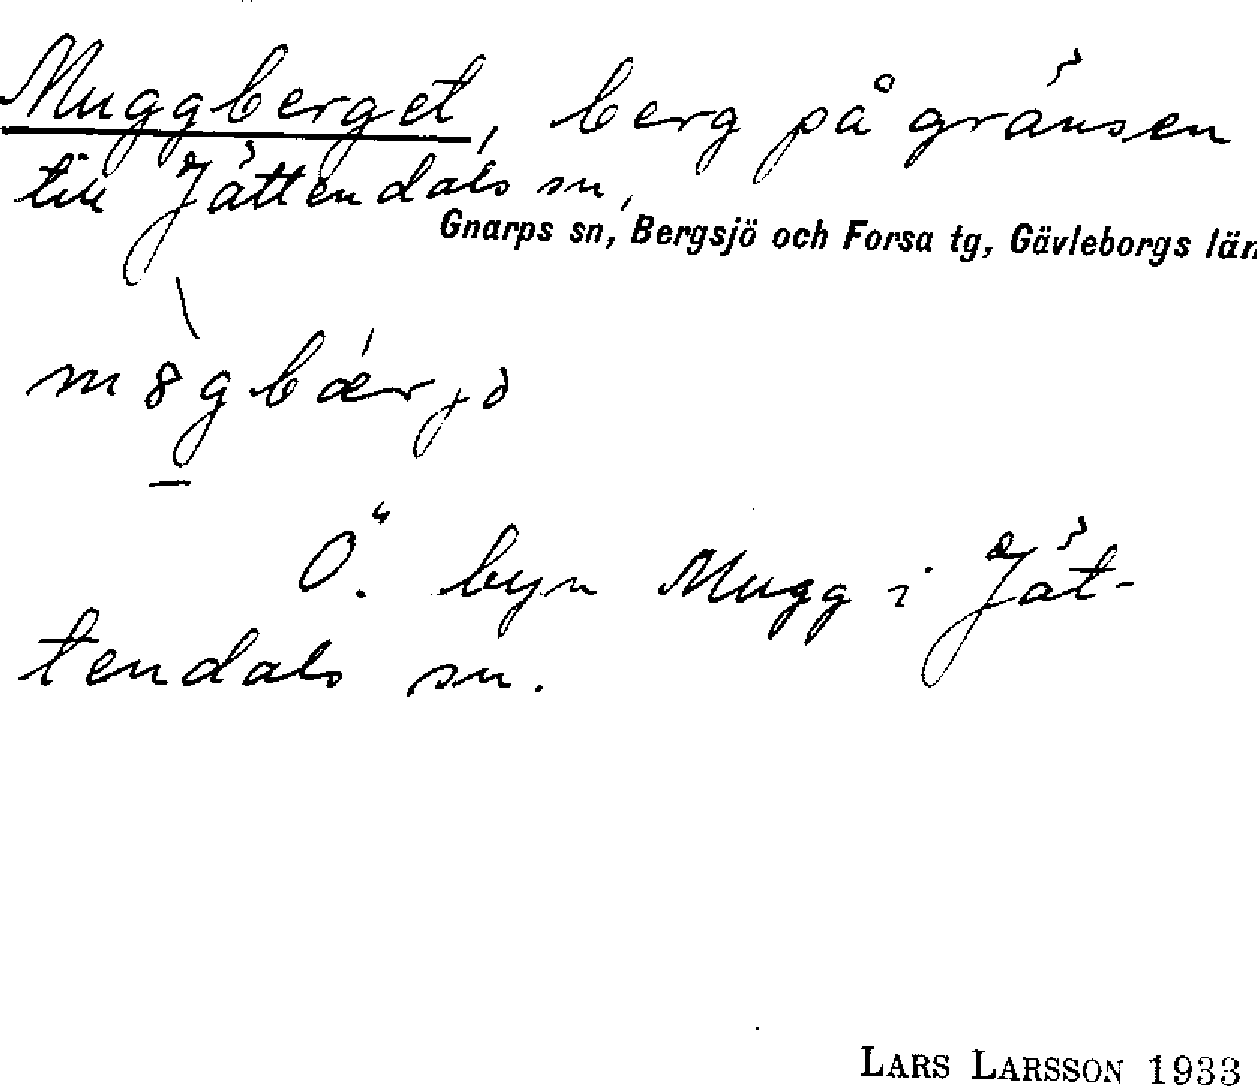 Muggberget, berg på gränsen
till Jättendals sn,
Gnarps sn, Bergsjö och Forsa tg, Gävleborgs län
Ö. byn Mugg i Jät-
tendals sn.
LARS LARSSON 1933